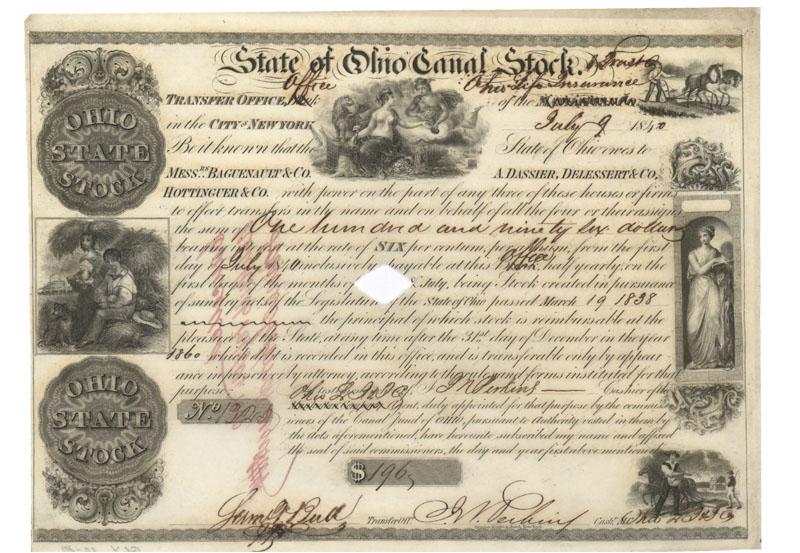 State of Ohio Canal Stock.
& Trust Co
Office
Ohio Life Insurance
TRANSFER OFFICE,
of the
in the CITY of NEW YORK
July 9 1840
Be it known that the
State of Ohio owes to
MESS.RS BAGUENAULT & CO.
A. DASSIER, DELESSERT & CO,
HOTTINGUER & CO. with power on the part of any three of those houses or firms
to effect transfers in the name and on behalf of all the four or their assigns
the sum of One hundred and ninety six dollars
bearing interest at the rate of SIX per centum, per annum, from the first
day of July inclusively, payable at this Office half yearly, on the
first days of the months of July, being Stock created in pursuance
of sundry acts of the Legislature of the State of Ohio passed March 19 1838
the principal of which stock is reimbursable at the
pleasure of the State, at any time after the 31st day of December in the year
1860 which debt is recorded in this office, and is transferable only by appear
ance in person or by attorney, according to the rules and forms instituted for that
purpose.
Perkins Cashier of the
Ohio L I & T Co
Agent, duly appointed for that purpose by the commiss
ioners of the Canal Fund of Ohio, pursuant to Authority vested in them by
the acts aforementioned, have hereunto subscribed my name and affixed
the seal of said commissioners, the day and year first above mentioned
No
$ 196,
Transfer Off.
Perkins
Cash.r
OHIO
STATE
STOCK
OHIO
STATE
STOCK